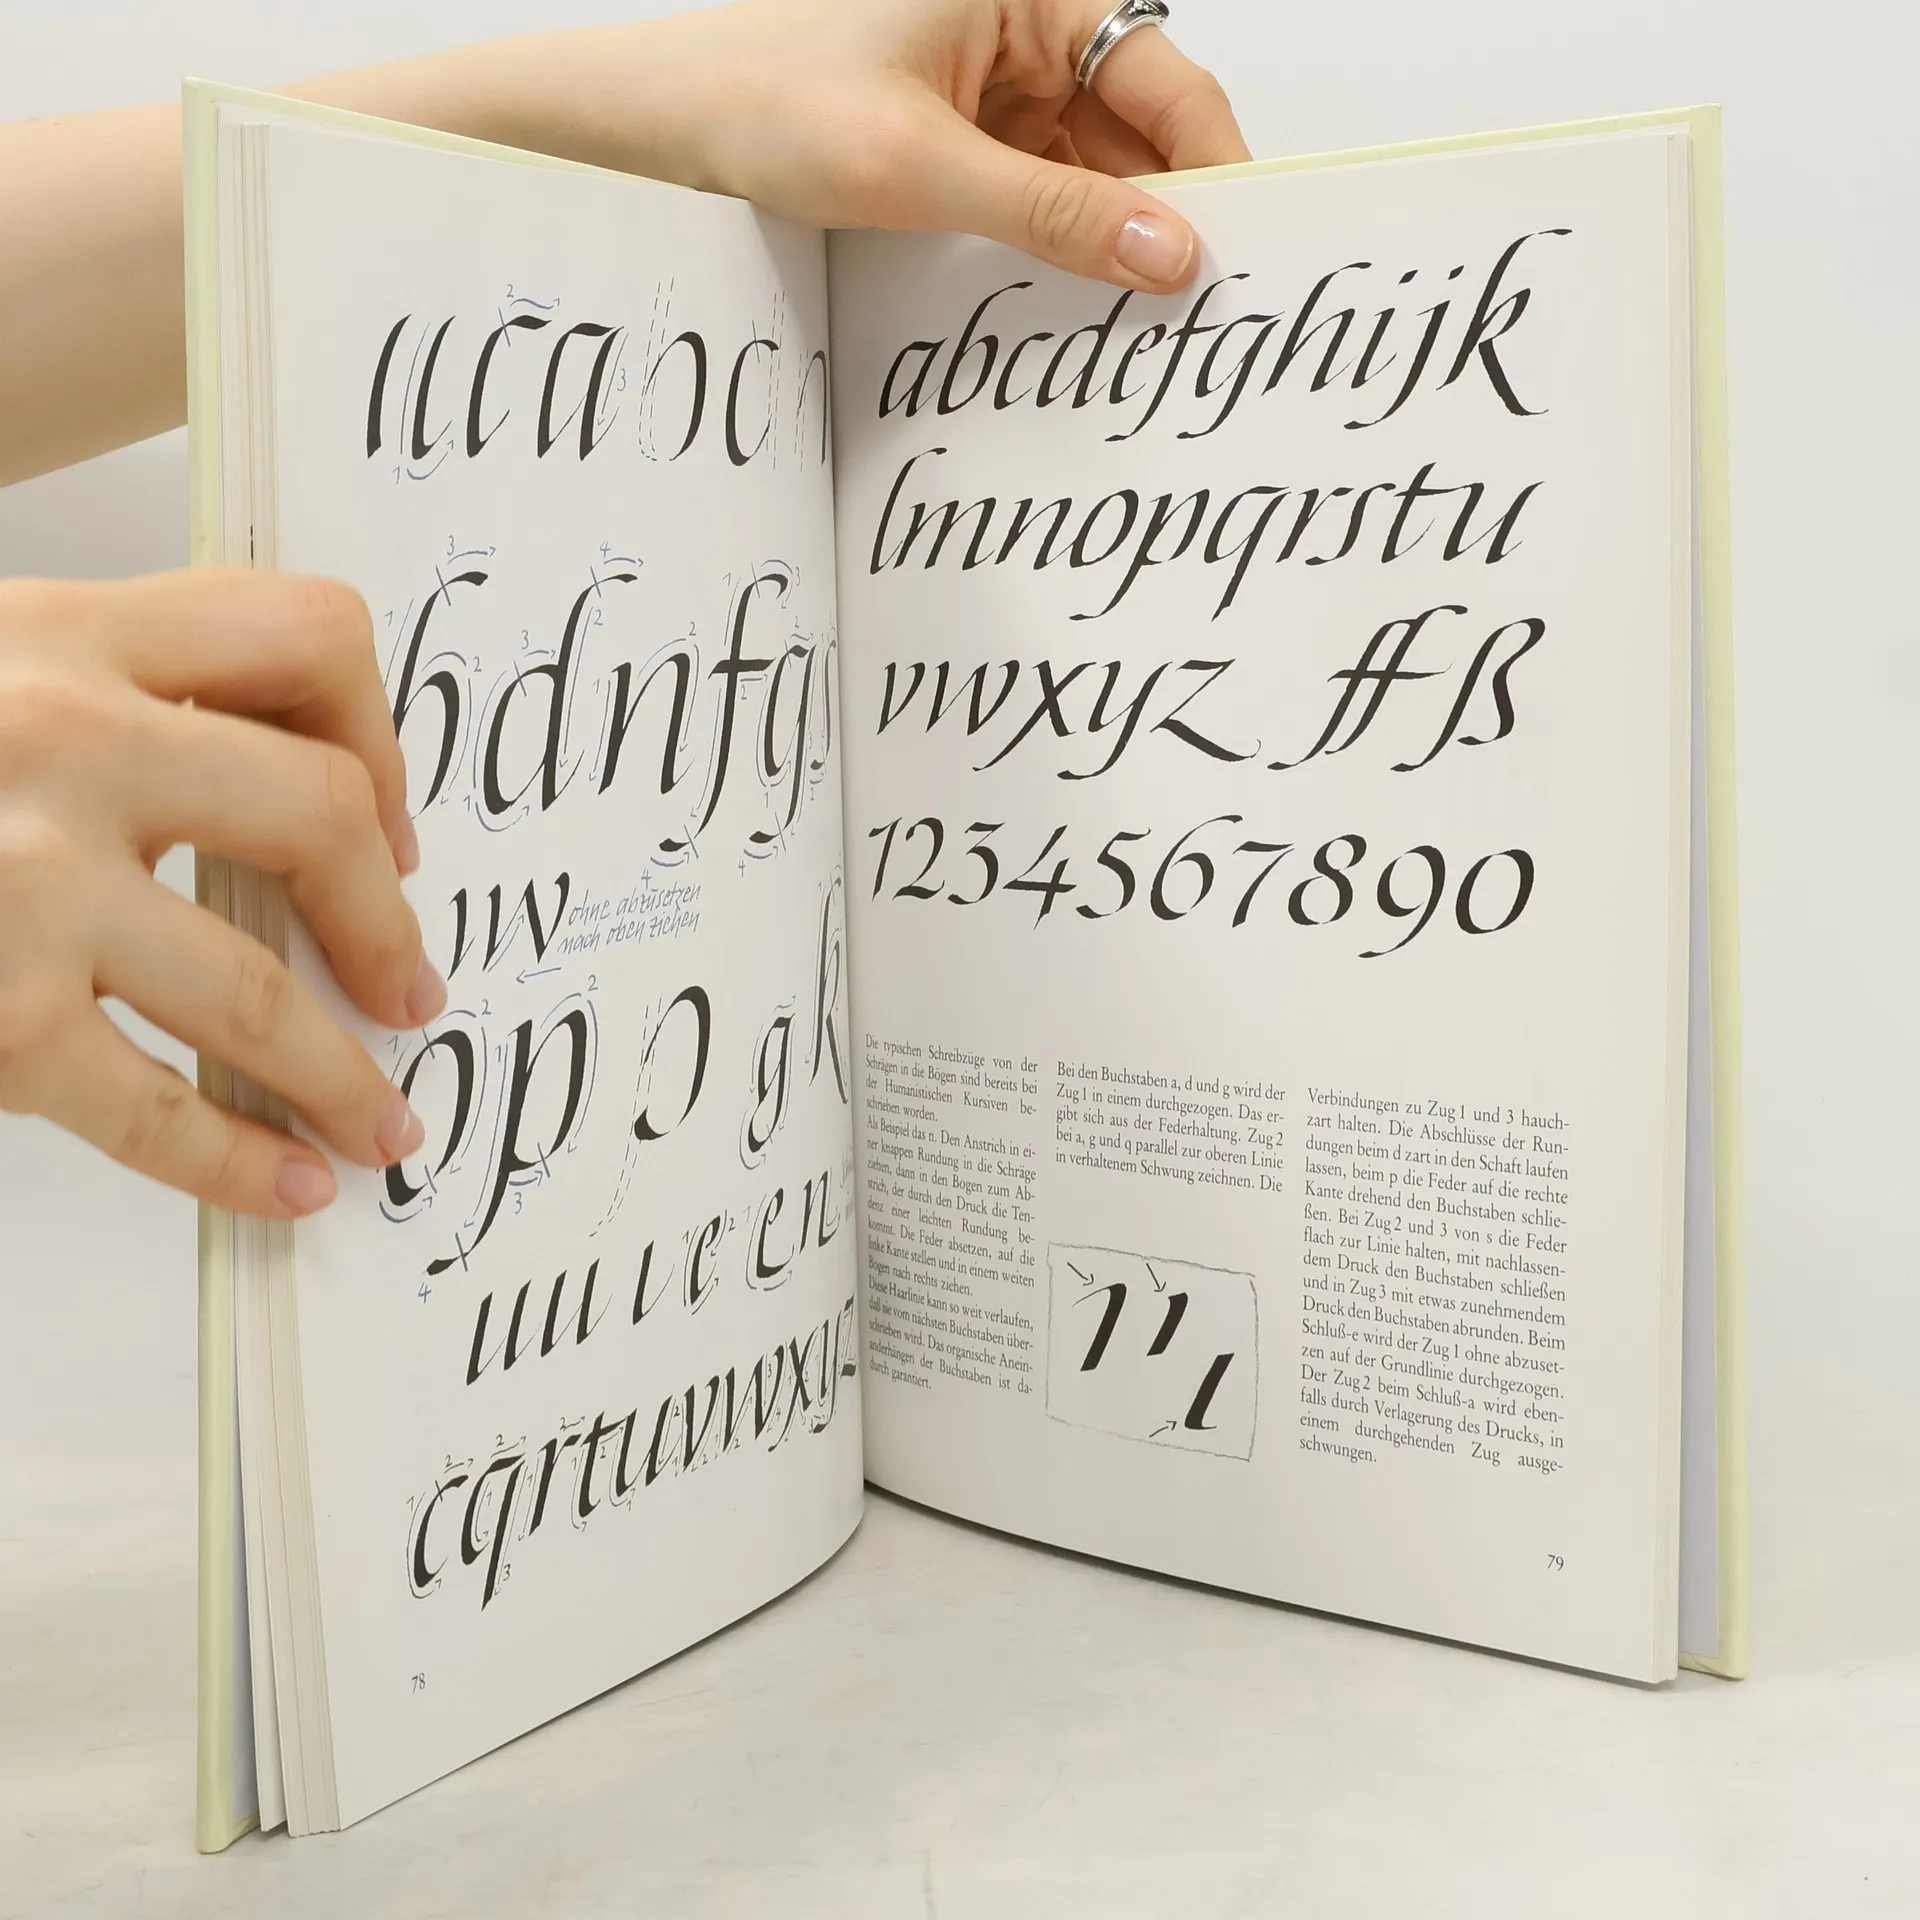 ohne abzusetzen
nach oben ziehen
c q r t u v w x y z
78
abcdefghijk
lmnopqrstu
vwxyz ff ß
1234567890
Die typischen Schreibzüge von der
Schrägen in die Bögen sind bereits bei
der Humanistischen Kursiven be-
schrieben worden.
Als Beispiel das n. Den Anstrich in ei-
ner knappen Rundung in die Schräge
ziehen, dann in den Bogen zum Ab-
strich, der durch den Druck die Ten-
denz einer leichten Rundung be-
kommt. Die Feder absetzen, auf die
linke Kante stellen und in einem weiten
Bogen nach rechts ziehen.
Diese Haarlinie kann so weit verlaufen,
daß sie vom nächsten Buchstaben über-
schrieben wird. Das organische Anein-
anderhängen der Buchstaben ist da-
durch garantiert.
Bei den Buchstaben a, d und g wird der
Zug 1 in einem durchgezogen. Das er-
gibt sich aus der Federhaltung. Zug 2
bei a, g und q parallel zur oberen Linie
in verhaltenem Schwung zeichnen. Die
Verbindungen zu Zug 1 und 3 hauch-
zart halten. Die Abschlüsse der Run-
dungen beim d zart in den Schaft laufen
lassen, beim p die Feder auf die rechte
Kante drehend den Buchstaben schlie-
ßen. Bei Zug 2 und 3 von s die Feder
flach zur Linie halten, mit nachlassen-
dem Druck den Buchstaben schließen
und in Zug 3 mit etwas zunehmendem
Druck den Buchstaben abrunden. Beim
Schluß-e wird der Zug 1 ohne abzuset-
zen auf der Grundlinie durchgezogen.
Der Zug 2 beim Schluß-a wird eben-
falls durch Verlagerung des Drucks, in
einem durchgehenden Zug ausge-
schwungen.
79